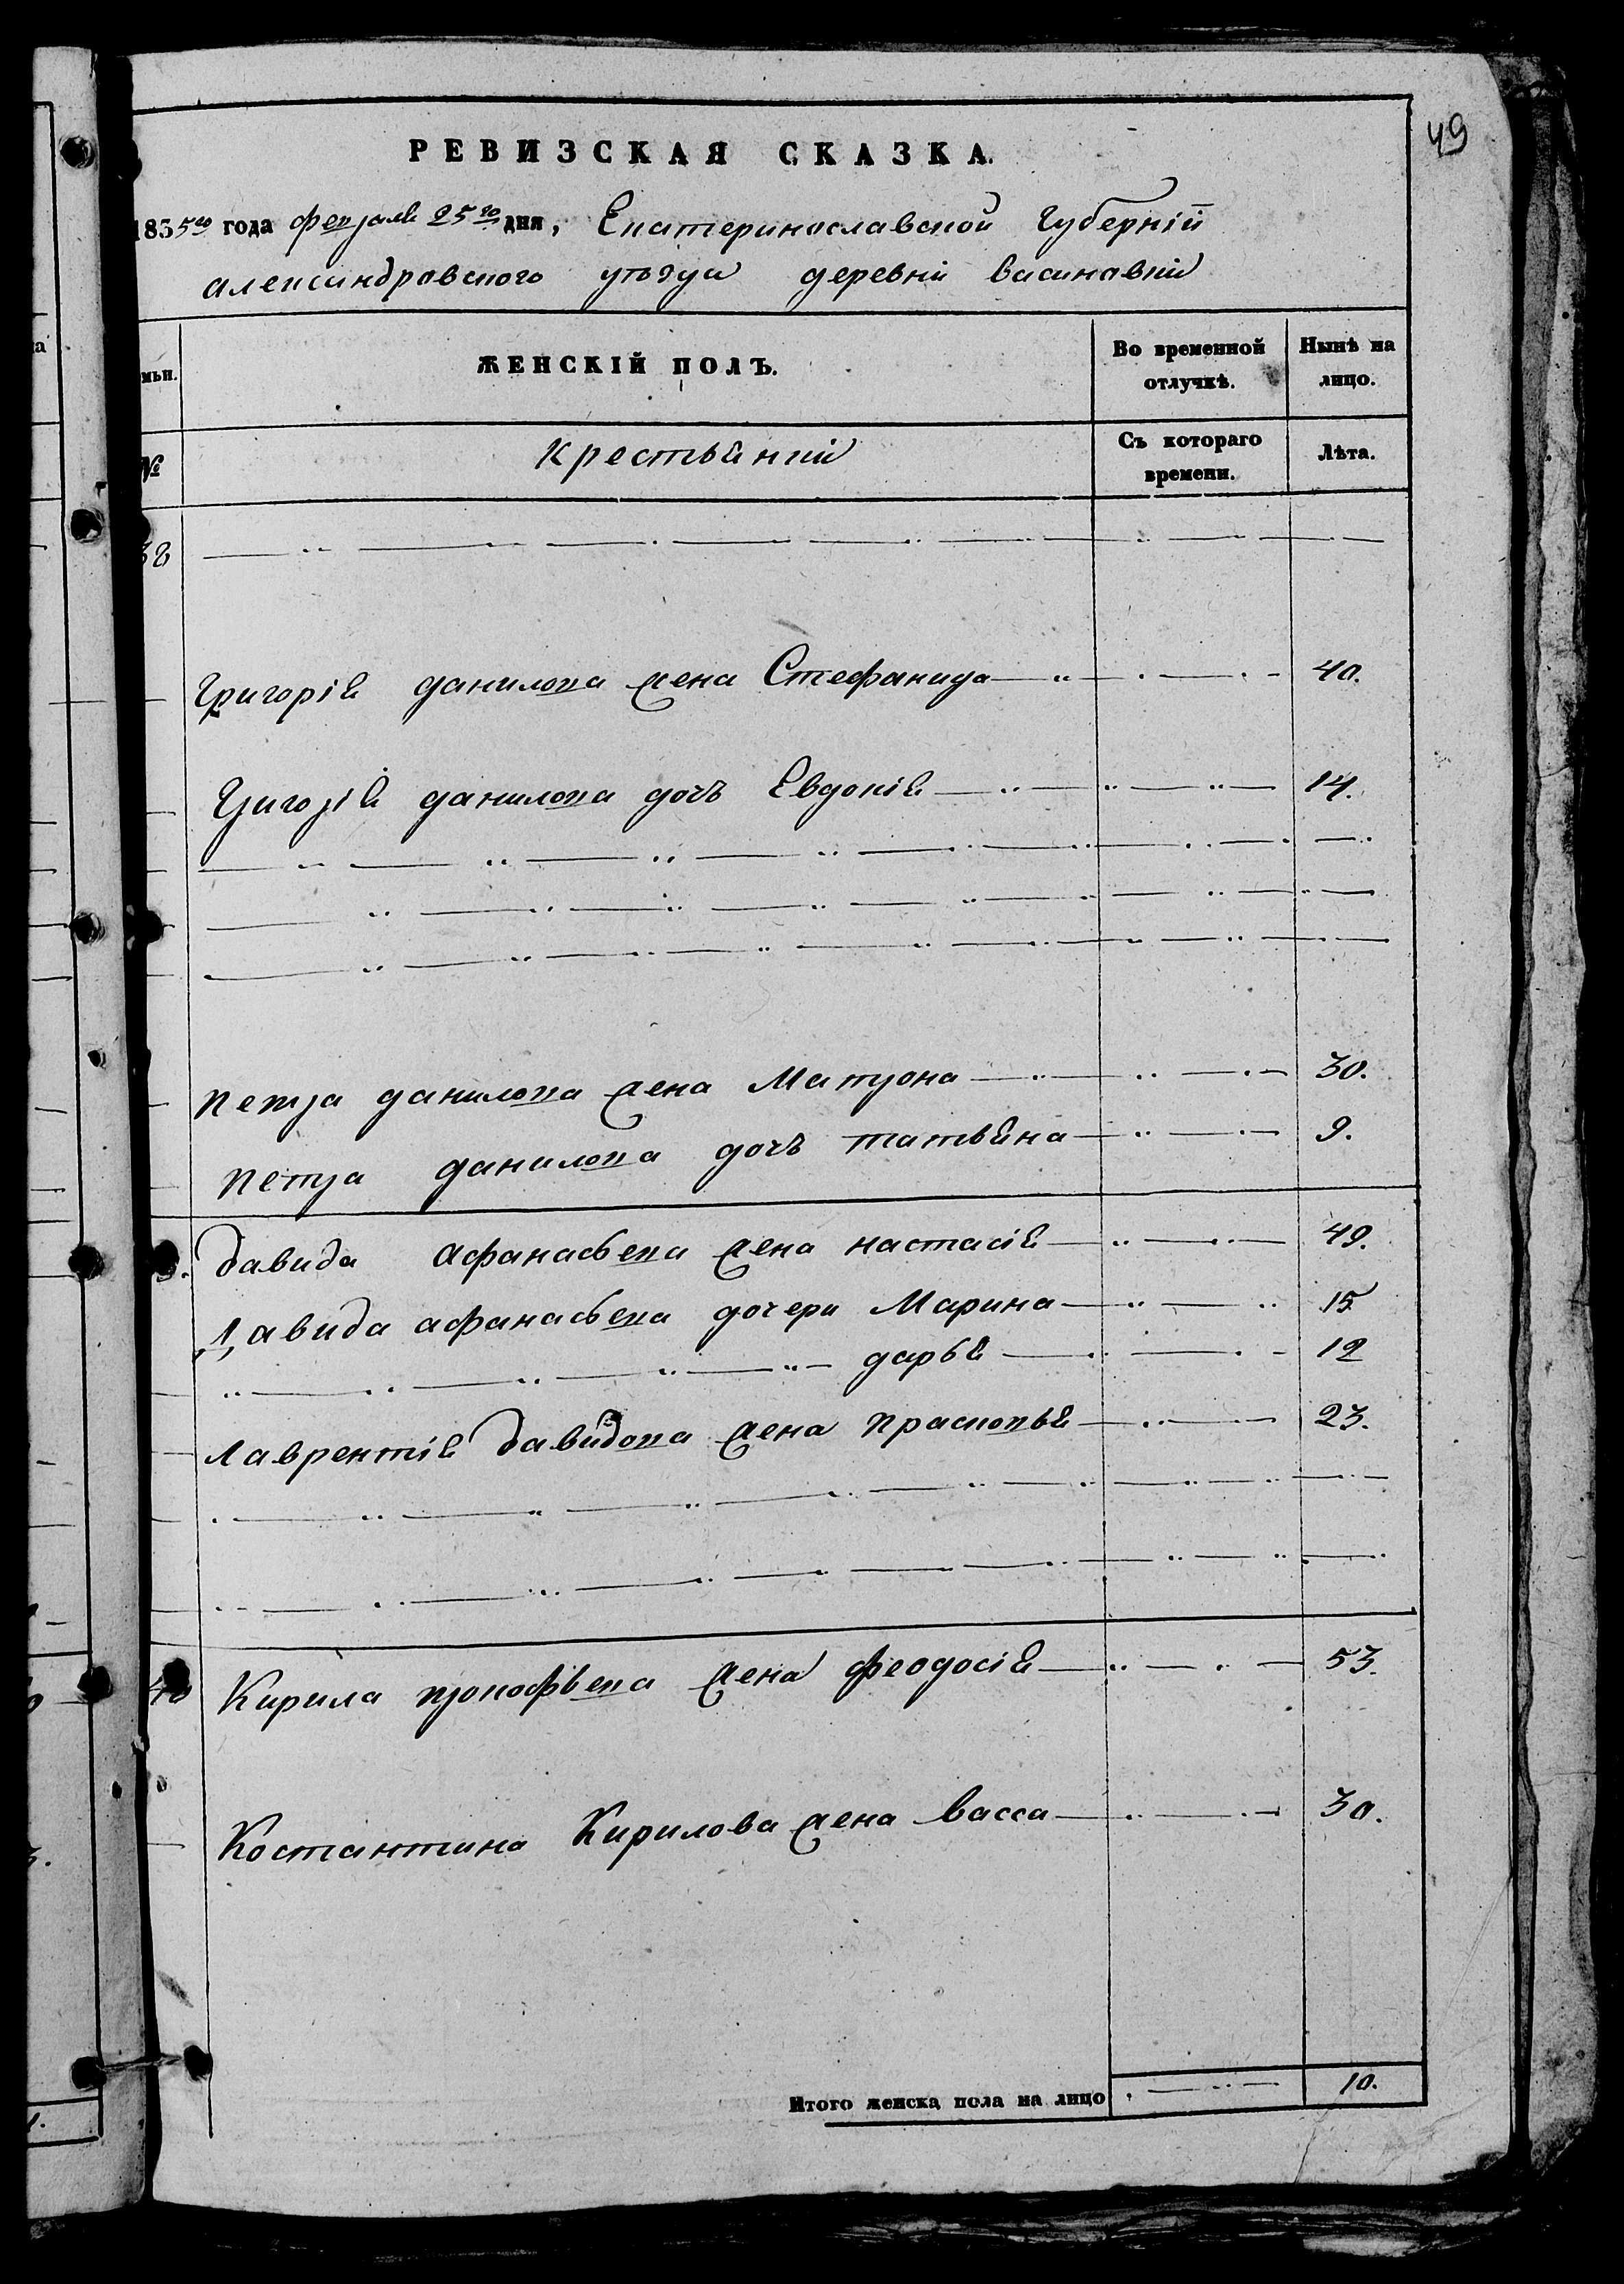 49
РЕВИЗСКАЯ СКАЗКА.
1835го года февраля 25го дня, Екатеринославской Губерніи
александровского уѣзда деревни васинавки
мьи.
ЖЕНСКІЙ ПОЛЪ.
Во временной отлучкѣ.
Нынѣ на лицо.
№
крестьянки
Съ котораго времени.
Лѣта.
38
Григорія данилова жена Стефанида 40.
Григорія данилова дочь Евдокія 14.
петра данилова жена Матрона 30.
петра данилова дочь татьяна 9.
давида афанасьева жена настасія 49.
Давида афанасьева дочери Марина 15
дарья 12
лаврентія давидова жена прасковья 23.
40 Кирила прокофьева жена феодосія 53.
Костантина Кирилова жена васса 30.
Итого женска пола на лицо 10.